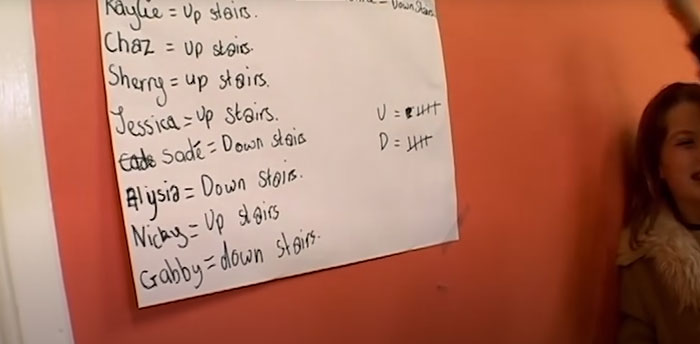 Kaylie = Up stairs.
= Down Stairs
Chaz = up stairs.
Sherry = up stairs.
Jessica = Up Stairs.
Sadé = Down stairs
Alysia = Down Stairs.
Nicky = Up stairs
Gabby = down stairs.
U =
D =